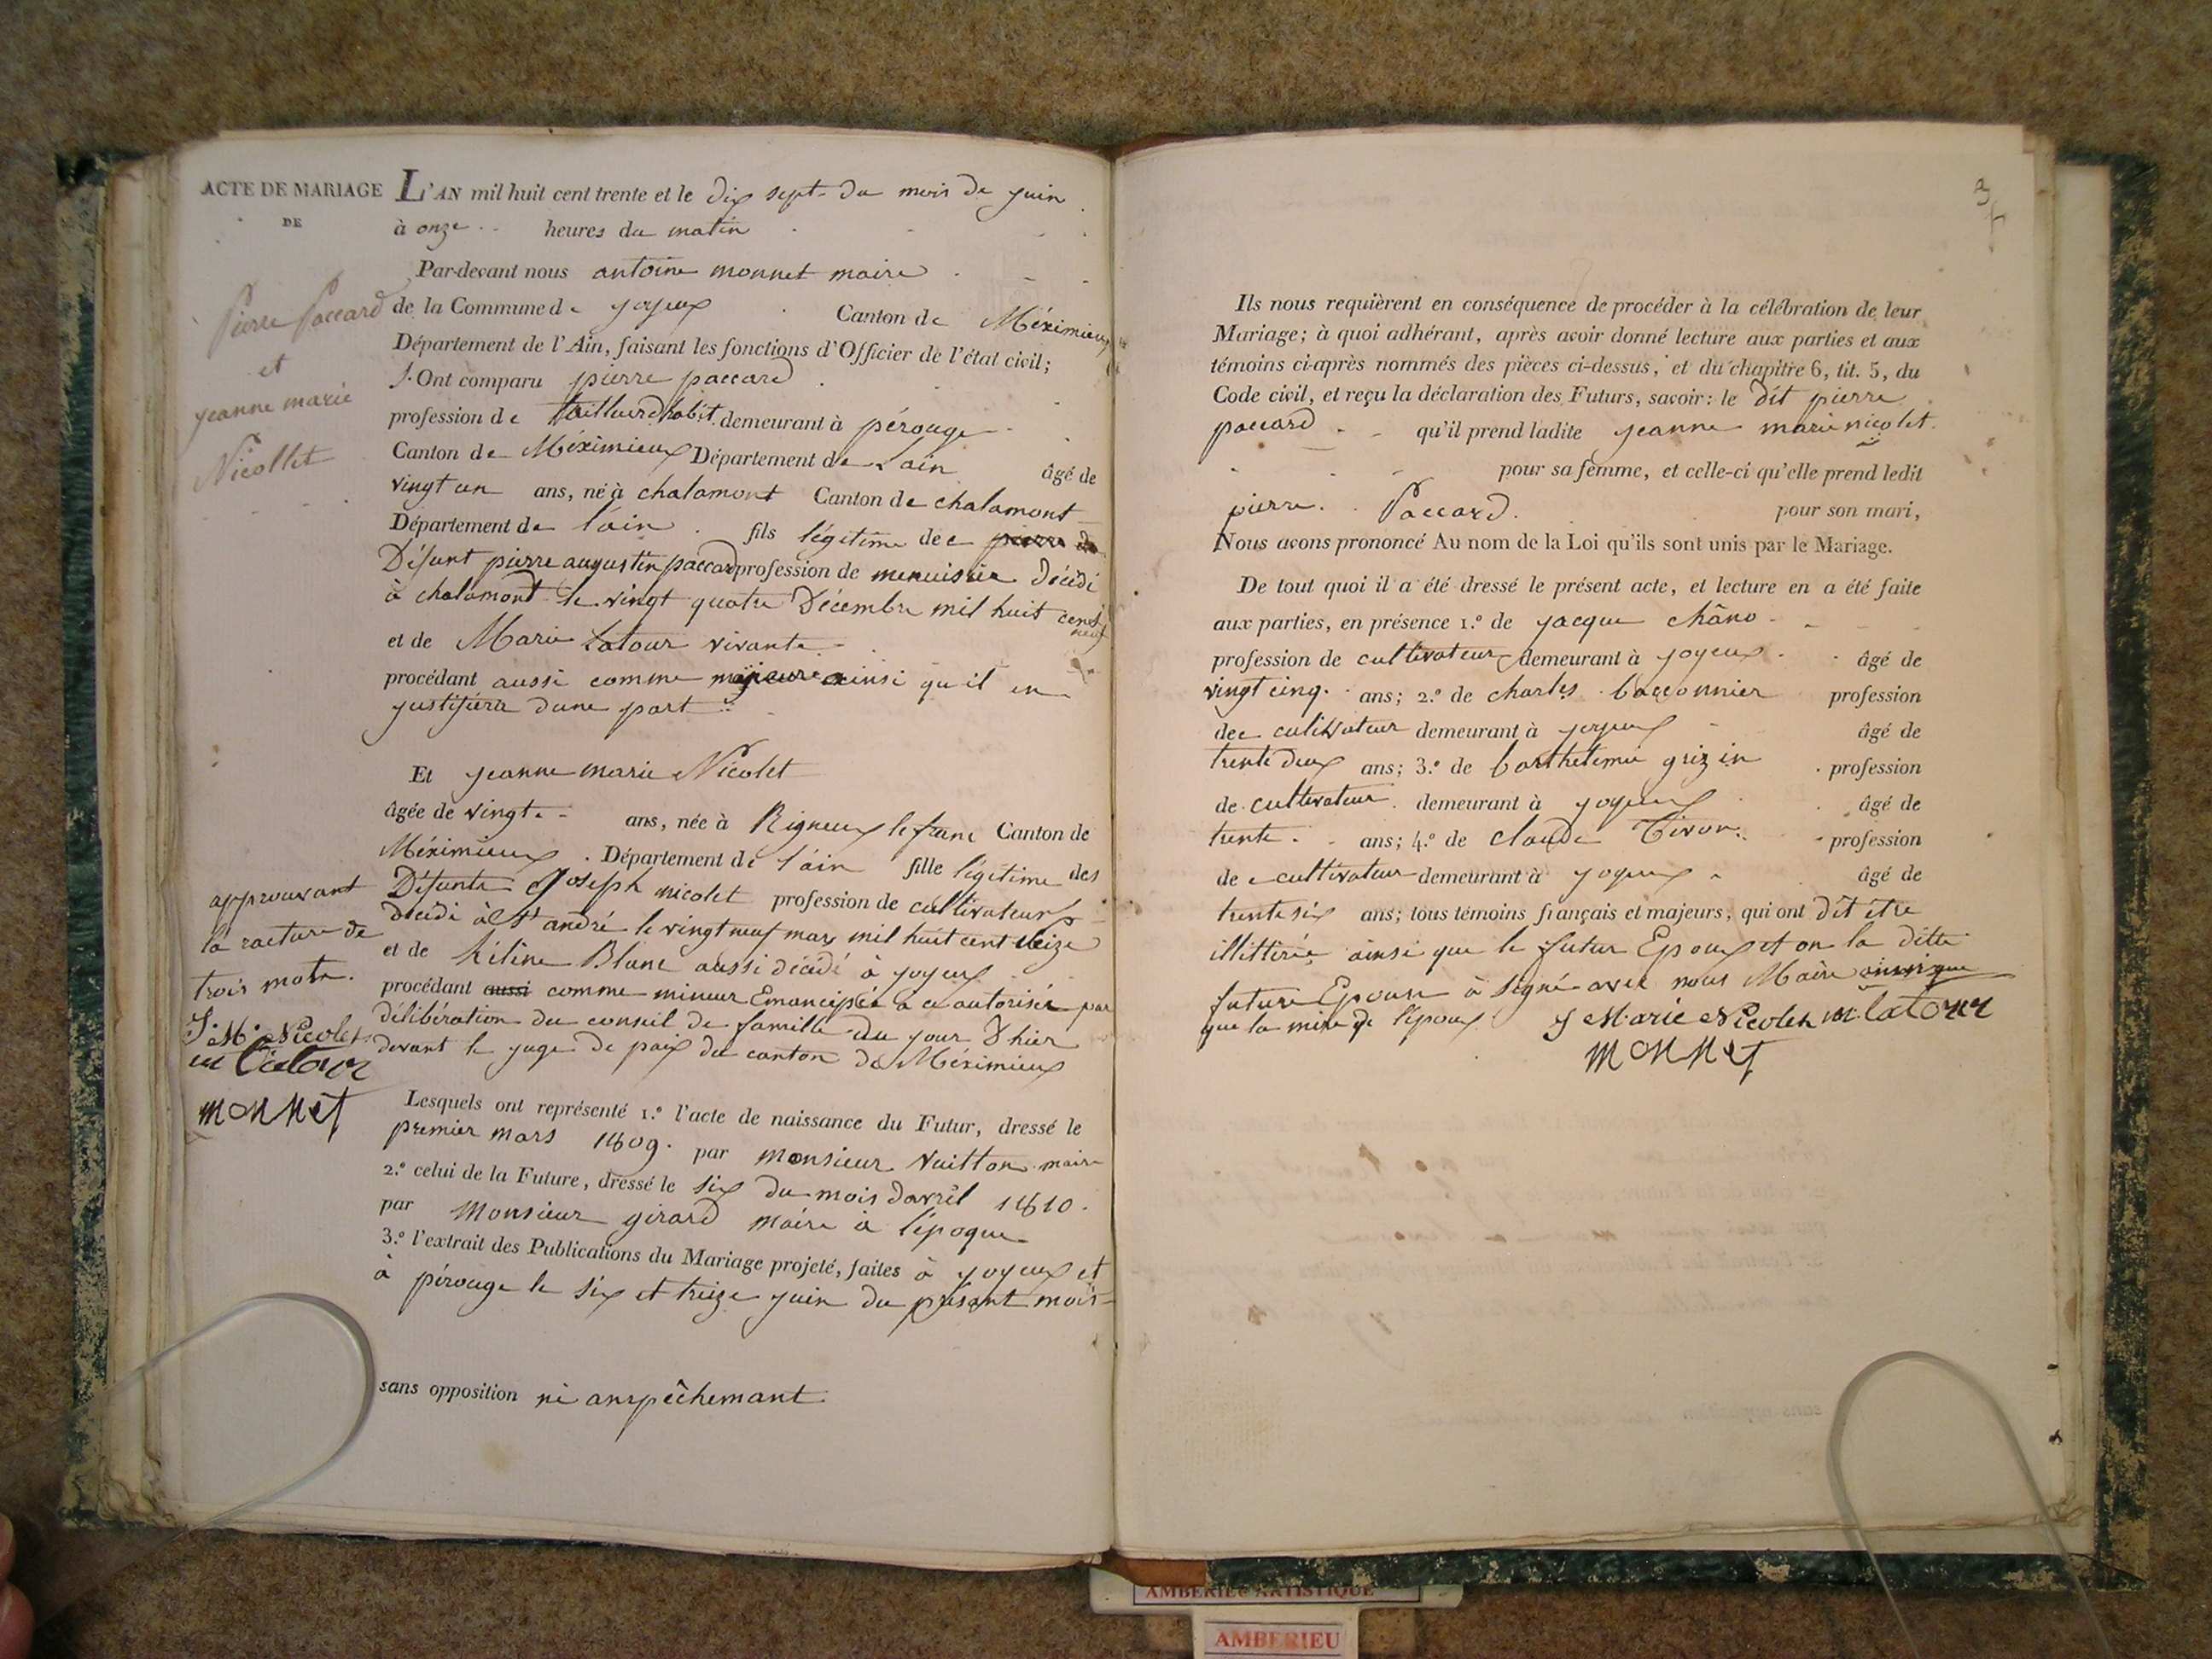 ACTE DE MARIAGE
DE
Pierre Paccard
et
jeanne marie
Nicollet
approuvant
la racture de
trois mots.
J. M. Nicolet
m latour
monnet
L'AN mil huit cent trente et le dix sept du mois de juin
à onze heures du matin
Par-devant nous antoine monnet maire
de la Commune de joyeux Canton de Méximieux
Département de l'Ain, faisant les fonctions d'Officier de l'état civil;
Ont comparu pierre paccard
profession de tailleur d'habit demeurant à pérouge
Canton de Méximieux Département de Lain âgé de
vingt un ans, né à chalamont Canton de chalamont
Département de l'ain fils légitime de
Défunt pierre augustin paccard profession de menuisier décédé
à chalamont le vingt quatre Décembre mil huit cent
neuf
et de Marie Latour vivante
procédant aussi comme majeur ainsi qu'il en
justifiera dune part
Et jeanne marie Nicolet
âgée de vingt ans, née à Rigneux le franc Canton de
Méximieux Département de l'ain fille légitime des
Défunts Joseph nicolet profession de cultivateur
décédé à St andré le vingt neuf mars mil huit cent seize
et de hélène Blanc aussi décédé à joyeux
procédant aussi comme mineur Emancipée a ce autorisée par
délibération du conseil de famille du jour d'hier
devant le juge de paix du canton de Méximieux
Lesquels ont représenté 1.º l'acte de naissance du Futur, dressé le
premier mars 1809. par monsieur Vuitton maire
2.º celui de la Future, dressé le six du mois davril 1810.
par Monsieur girard maire à l'époque
3.º l'extrait des Publications du Mariage projeté, faites à joyeux et
à pérouge le six et treize juin du présent mois
sans opposition ni anpêchemant
Ils nous requièrent en conséquence de procéder à la célébration de leur
Mariage; à quoi adhérant, après avoir donné lecture aux parties et aux
témoins ci-après nommés des pièces ci-dessus, et du chapitre 6, tit. 5, du
Code civil, et reçu la déclaration des Futurs, savoir: le dit pierre
paccard qu'il prend ladite jeanne marie nicolet
pour sa femme, et celle-ci qu'elle prend ledit
pierre Paccard. pour son mari,
Nous avons prononcé Au nom de la Loi qu'ils sont unis par le Mariage.
De tout quoi il a été dressé le présent acte, et lecture en a été faite
aux parties, en présence 1.º de jacque châno
profession de cultivateur demeurant à joyeux âgé de
vingt cinq ans; 2.º de charles bacconnier profession
de cultivateur demeurant à joyeux âgé de
trente deux ans; 3.º de barthelemie grizin profession
de cultivateur demeurant à joyeux âgé de
trente ans; 4.º de claude Tivon profession
de cultivateur demeurant à joyeux âgé de
trente six ans; tous témoins français et majeurs, qui ont dit être
illitérée ainsi que le futur Epoux et on la ditte
future Epouse a signé avec nous Maire ainsi que
que la mère de l'époux J Marie Nicolet m. latour
monnet